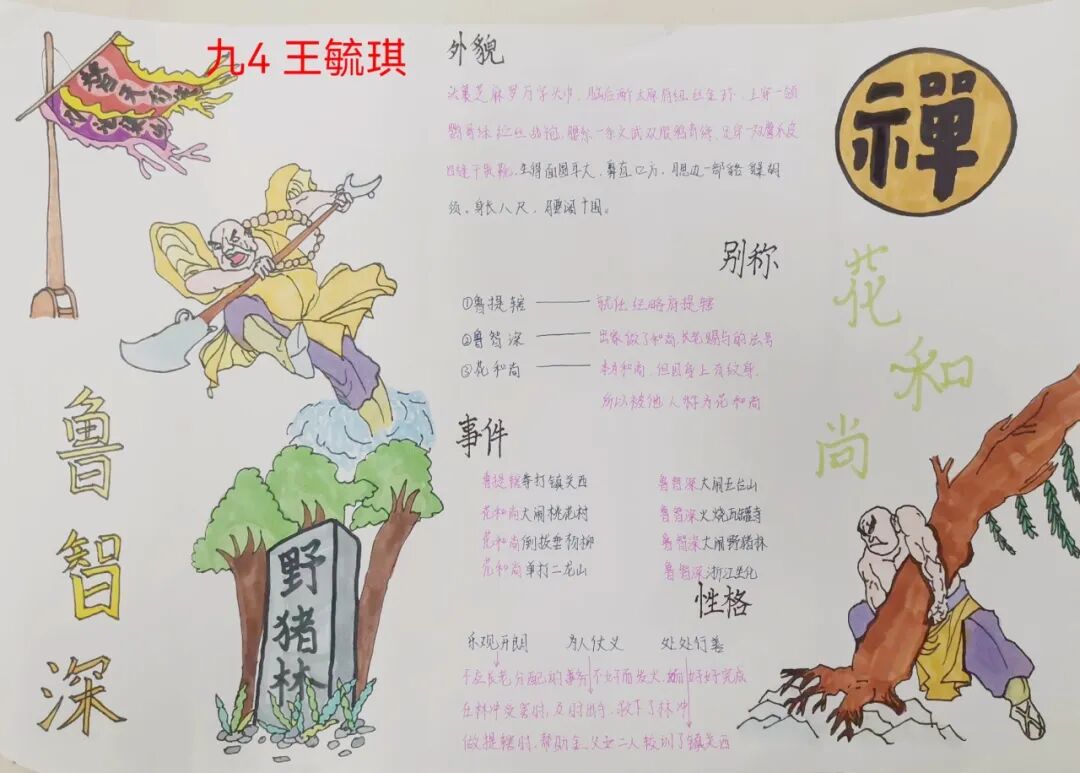 九4 王毓琪
替天行道
鲁智深
野猪林
外貌
头裹芝麻罗万字头巾，脑后两个太原府纽丝金环，上穿一领
鹦哥绿纻丝战袍，腰系一条文武双股鸦青绦，足穿一双鹰爪皮
四缝干黄靴。生得面圆耳大，鼻直口方，腮边一部貉 胡
须。身长八尺，腰阔十围。
禪
别称
①鲁提辖 —— 就任经略府提辖
②鲁智深 —— 出家做了和尚，长老赐与的法号
③花和尚 —— 和尚，但因身上有纹身，
所以被他人称为花和尚
花和尚
事件
鲁提辖拳打镇关西 鲁智深大闹五台山
花和尚大闹桃花村 鲁智深火烧瓦罐寺
花和尚倒拔垂杨柳 鲁智深大闹野猪林
花和尚单打二龙山 鲁智深浙江坐化
性格
乐观开朗 为人仗义 处处行善
不应长老分配的事务不好而发火，而好好完成
在林冲受害时，及时出手，救下了林冲
做提辖时，帮助金 父女二人教训了镇关西